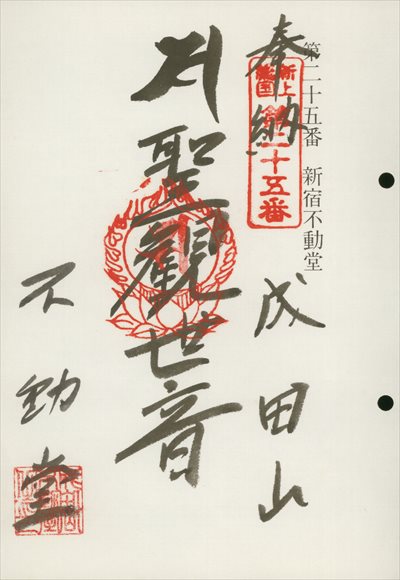 第二十五番 新宿不動堂
奉納
新上総国
第二十五番
成田山
聖観世音
不動堂